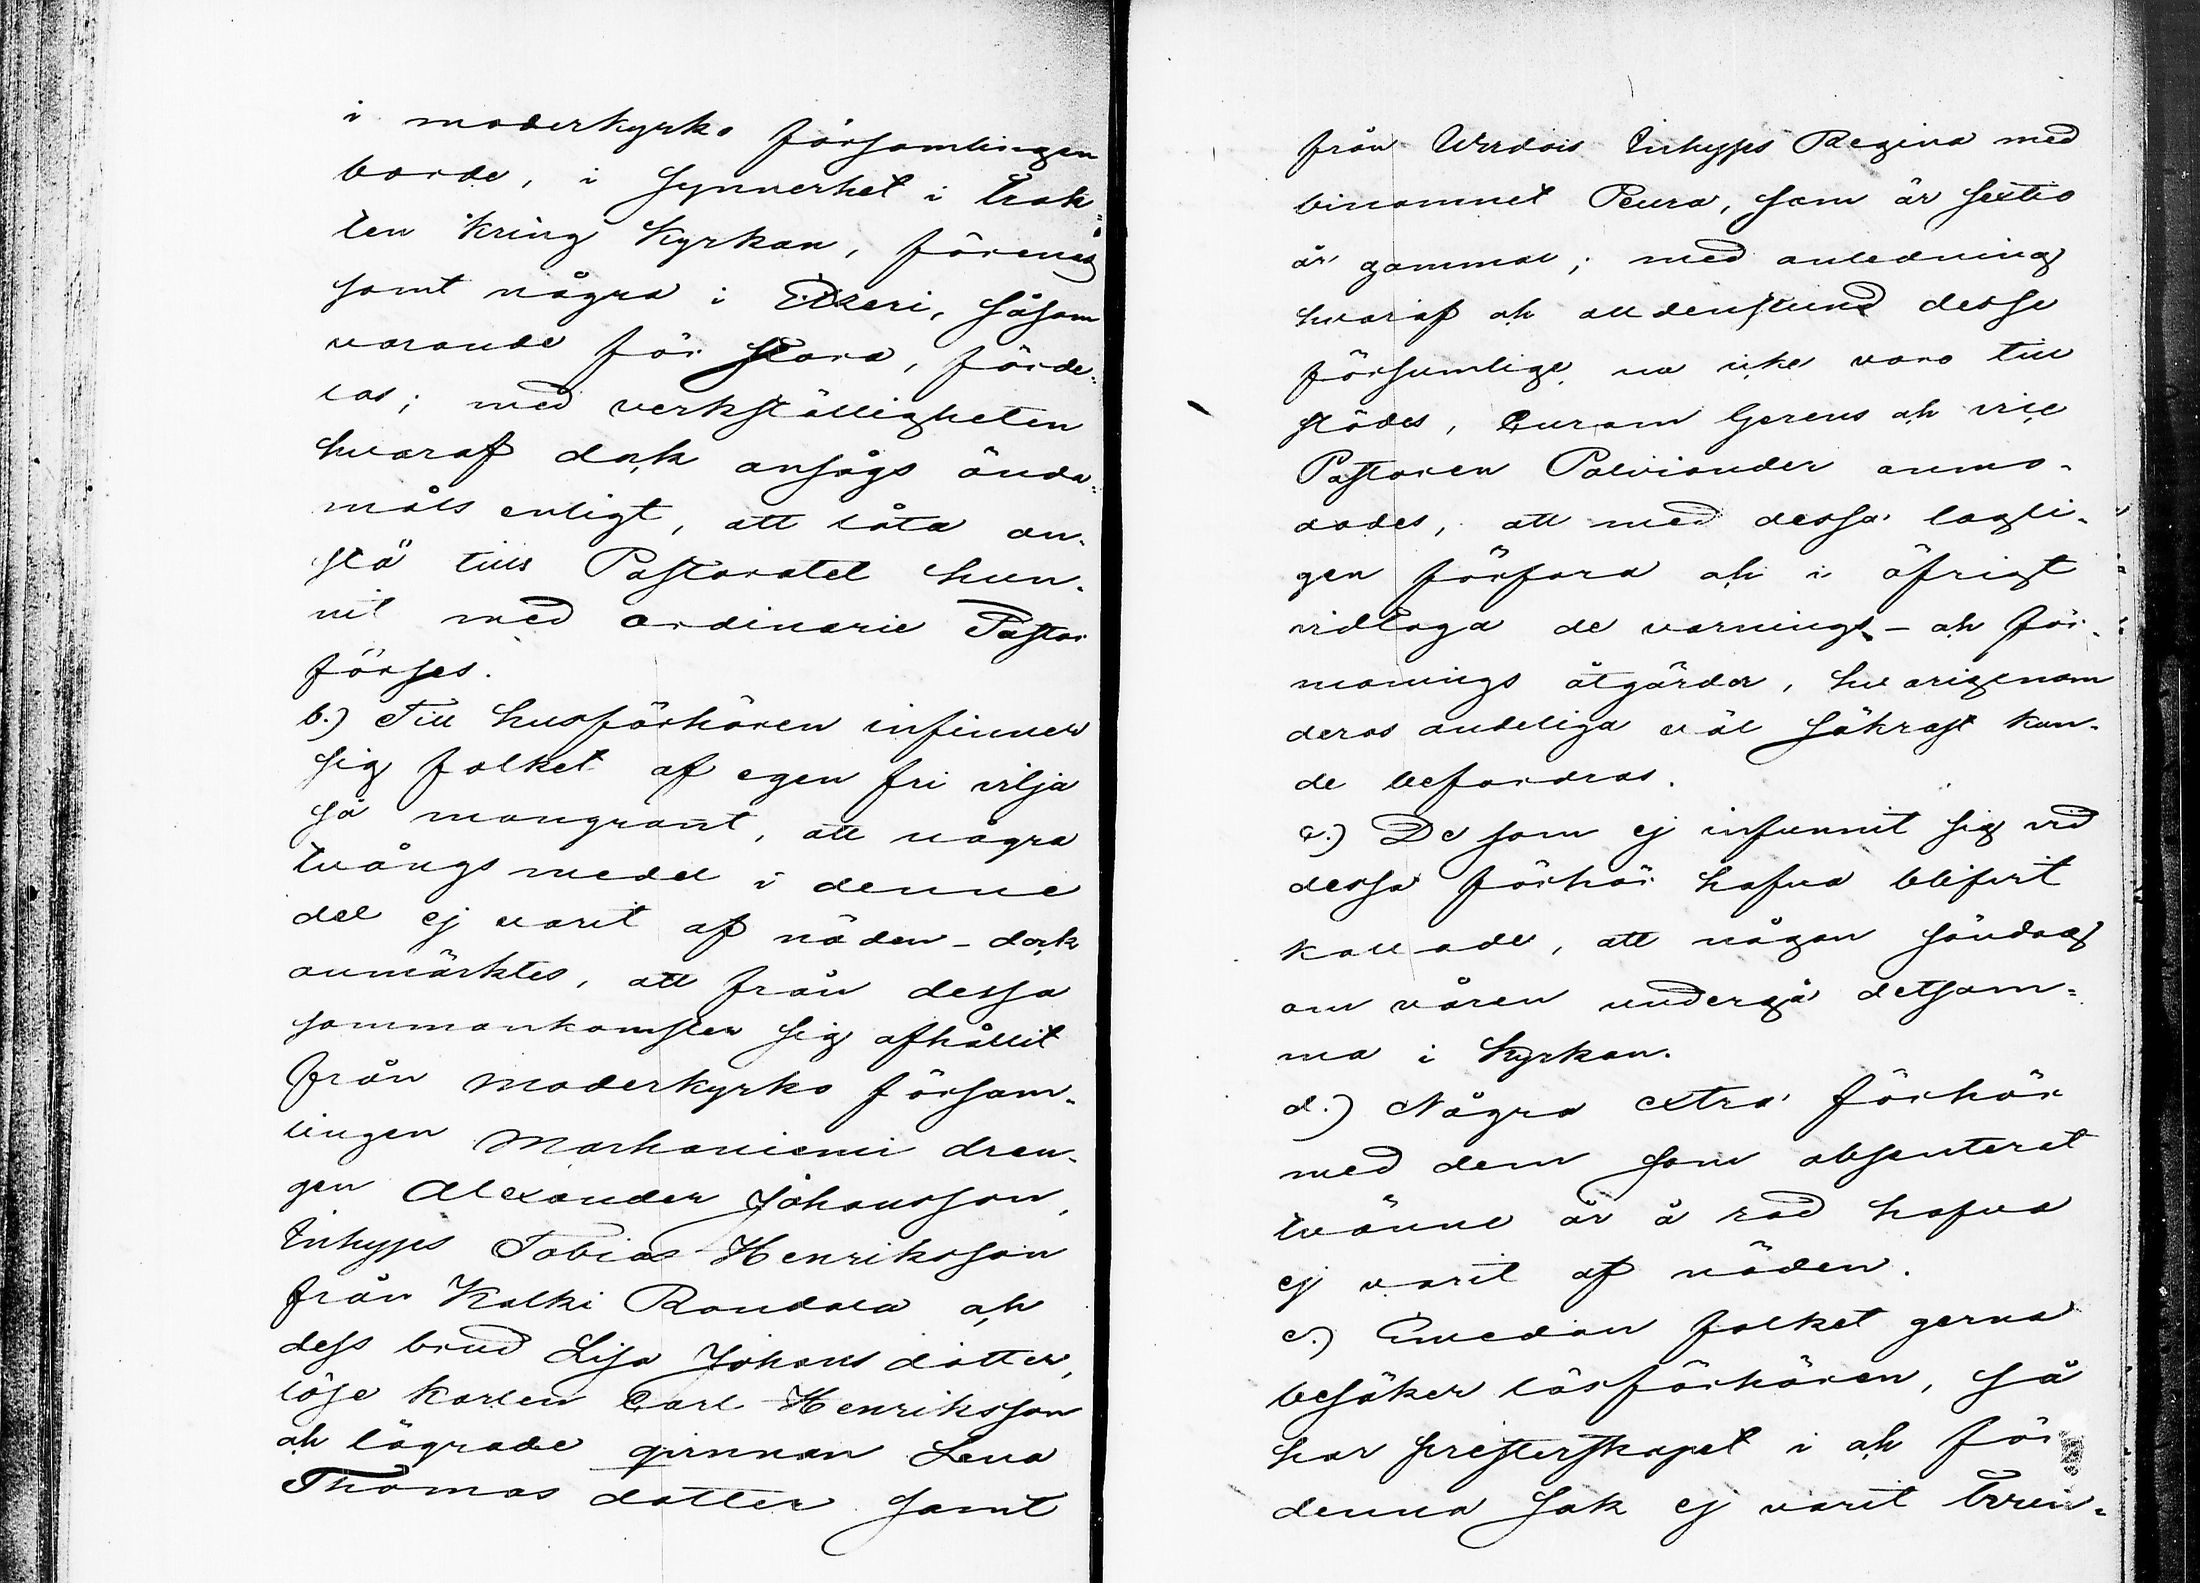 i moderkyrko församlingen
borde, i synnerhet i trak-
ten kring kyrkan, förenas
samt några i Etseri, såsom
varande för stora, förde-
las; med verkställigheten
hvaraf dock ansågs ända-
måls enligt, att låta an-
stå tills Pastoratet hun-
nit med ordinarie Pastor
förses.
b.) Till husförhören infinner
sig folket af egen fri vilja
så mangrant, att några
tvångs medel i denne
del ej varit af nöden - dock
anmärktes, att från dessa
sammankomster sig afhållit
från moderkyrko försam-
lingen Marhaniemi dren-
gen Alexander Johansson,
Inhyses Tobias Henriksson
från Kolki Randala och
dess brud Lisa Johans dotter,
löse karlen Carl Henriksson
och lägrade qvinnan Lena
Thomas dotter samt
från Wirdois Inhyses Regina med
binamnet Peura, som är sextio
år gammal; med anledning
hvaraf och alldenstund desse
försumlige nu icke voro till
städes, Curam Gerens och vice
Pastoren Palviander anmo-
dades, att med dessa lagli-
gen förfara och i öfrigt
vidtaga de varnings- och för-
manings åtgärder, hvarigenom
deras andeliga väl säkrast kun-
de befordras.
c.) De som ej infunnit sig vid
dessa förhör hafva blifvit
kallade, att någon söndag
om våren undergå detsam-
ma i kyrkan.
d.) Några extra förhör
med dem som absenterat
tvänne år å rad hafva
ej varit af nöden.
e.) Emedan folket gerna
besöker läsförhören, så
har presterskapet i och för
denna sak ej varit tvun-